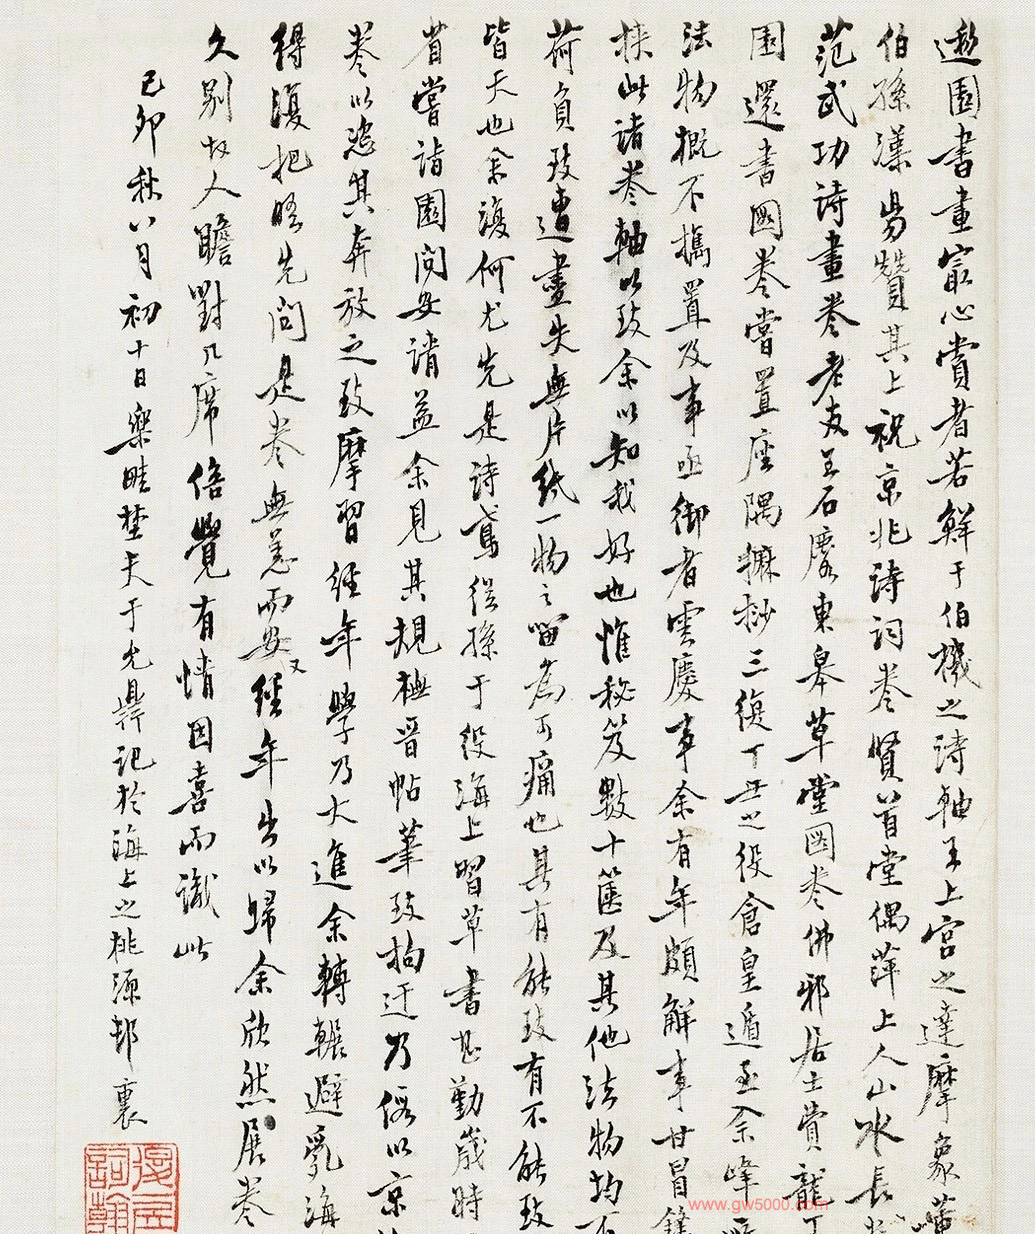 遯園書畫最心賞者若鮮于伯機之詩軸王上宮之達摩象
伯孫漢易贊其上祝京兆詩詞卷賢首堂偶萍上人山水長
范武功詩畫卷老友王石廣東皋草堂圖卷佛邪居士賞龍
園還書圖卷嘗置座隅摩抄三復丁丑之役倉皇遁至余峰
法物概不攜置及事亟御者雲慶事余有年頗解事甘冒鋒
挾此諸卷軸以致余以知我好也惟秘笈數十篋及其他法物均不
荷負致遭盡失無片紙一物之留為可痛也其有能致有不能致
皆天也余復何尤先是詩鳶從孫于役海上習草書甚勤歲時
省嘗詣園問安請益余見其規橅晉帖筆致拘迂乃假以京
卷以恣其奔放之致摩習經年學乃大進余轉輾避亂海
得復把晤先問是卷無恙而安又經年出以歸余欣然展卷
久別故人瞻對几席倍覺有情因喜而識此
己卯秋八月初十日樂畦埜夫于允鼎記於海上之桃源邨裏
www.gw5000.com